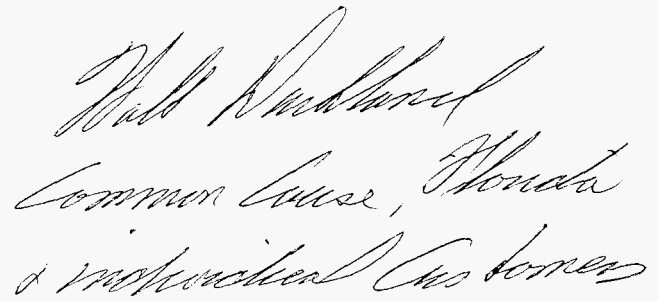 Walt Dartland
Common Cause, Florida
& individual Customers